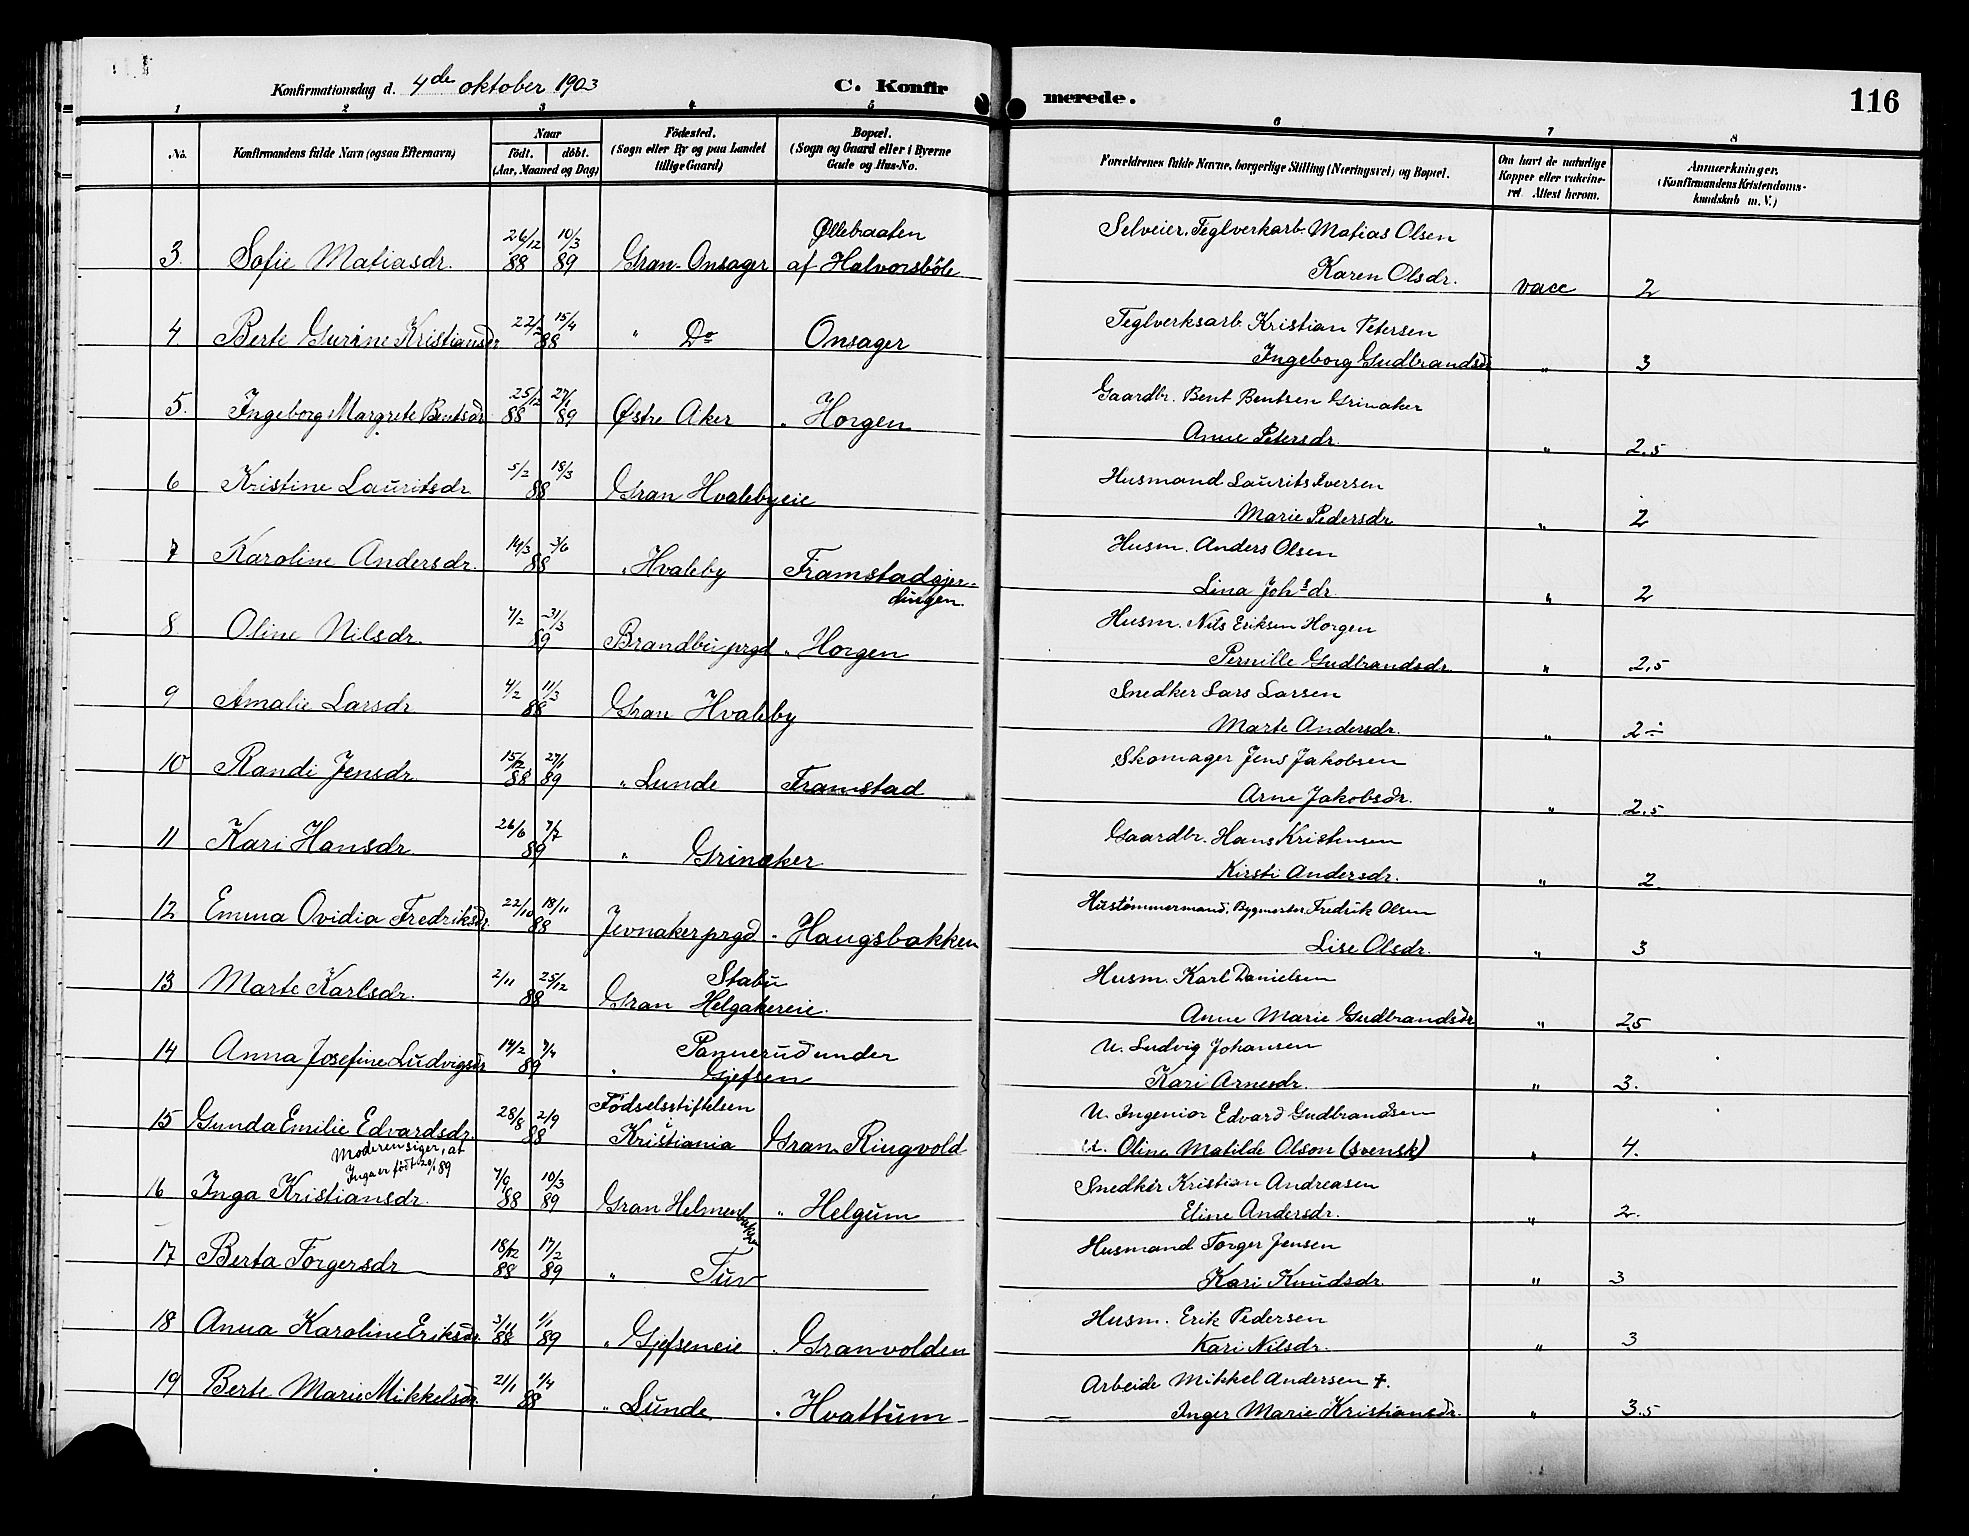 Konfirmationsdag d. 4de oktober 1903 C. Konfirmerede. 116
1 2 3 4 5 6 7 8
No. Konfirmandens fulde Navn (ogsaa Efternavn) Naar födt. döbt. (Aar, Maaned og Dag) Födested. (Sogn eller By og paa Landet tillige Gaard) Bopæl. (Sogn og Gaard eller i Byerne Gade og Hus-No. Forældrenes fulde Navne, borgerlige Stilling (Næringsvei) og Bopæl. Om havt de naturlige Kopper eller vakcineret. Attest herom. Anmærkninger. (Konfirmandens Kristendomskundskab m. V.)
3. Sofie Matiasdr. 26/12 88 10/3 89 Gran-Onsager Øllebraaten af Halvorsböle Selveier, Teglverkarb. Matias Olsen
Karen Olsdr. vacc 2
4 Berte Gurine Kristiansdr 22/2 15/4 88 " Do Onsager Teglverksarb. Kristian Petersen
Ingeborg Gudbrandsdr " 3
5. Ingeborg Margrete Bentsdr 25/12 88 27/1 89 Østre Aker " Horgen Gaardbr. Bent Bentsen Grinaker
Anne Petersdr. " 2.5
6 Kristine Lauritsdr. 5/2 18/3 88 Gran Hvalebyeie Husmand Laurits Iversen
Marie Pedersdr " 2
7 Karoline Andersdr. 14/3 3/6 88 " Hvaleby Framstadgjerdingen. Husm. Anders Olsen
Lina Johsdr. " 2
8 Oline Nilsdr. 7/2 31/3 89 Brandbu prgd " Horgen Husm. Nils Eriksen Horgen
Pernille Gudbrandsdr. " 2.5
9 Amalie Larsdr 4/2 11/3 88 Gran Hvaleby Snedker Lars Larsen
Marte Andersdr. " 2÷
10 Randi Jensdr. 15/12 88 27/1 89 " Lunde Framstad Skomager Jens Jakobsen
Arne Jakobsdr. " 2.5
11 Kari Hansdr. 26/6 7/7 89 " Grinaker Gaardbr. Hans Kristensen
Kirsti Andersdr. " 2
12 Emma Ovidia Fredriksdr. 22/10 18/11 88 Jevnaker prgd " Haugsbakken Hustömmermand, Bygmester Fredrik Olsen
Lise Olsdr. " 3
13 Marte Karlsdr. 2/11 25/12 88 Gran Stabu Helgakereie. Husm. Karl Danielsen
Anne Marie Gudbrandsdr " 2.5
14 Anna Josefine Ludvigsdr 14/2 7/4 89 " Pannerud under Gjefsen U. Ludvig Johansen
Kari Arnesdr. " 3.
15 Gunda Emilie Edvardsdr. 28/8 2/9 88 Födselsstiftelsen i Kristiania Gran. Ringvold U. Ingeniör Edvard Gudbrandsen
U. Oline Matilde Olson (svensk) " 4.
Moderen siger, at
Inga er födt 20/1 89
16 Inga Kristiansdr. 7/9 88 10/3 89 Gran Helmenbakken " Helgum Snedker Kristian Andreasen
Eline Andersdr. " 2.
17 Berta Torgersdr 18/12 88 17/2 89 " Tuv Husmand Torger Jensen
Kari Knudsdr. " 3
18 Anna Karoline Eriksdr. 3/11 88 1/1 89 " Gjefseneie " Granvolden Husm. Erik Pedersen
Kari Nilsdr. " 3
19 Berte Marie Mikkelsdr. 21/1 1/4 88 " Lunde " Hvattum Arbeide Mikkel Andersen †.
Inger Marie Kristiansdr. " 3.5